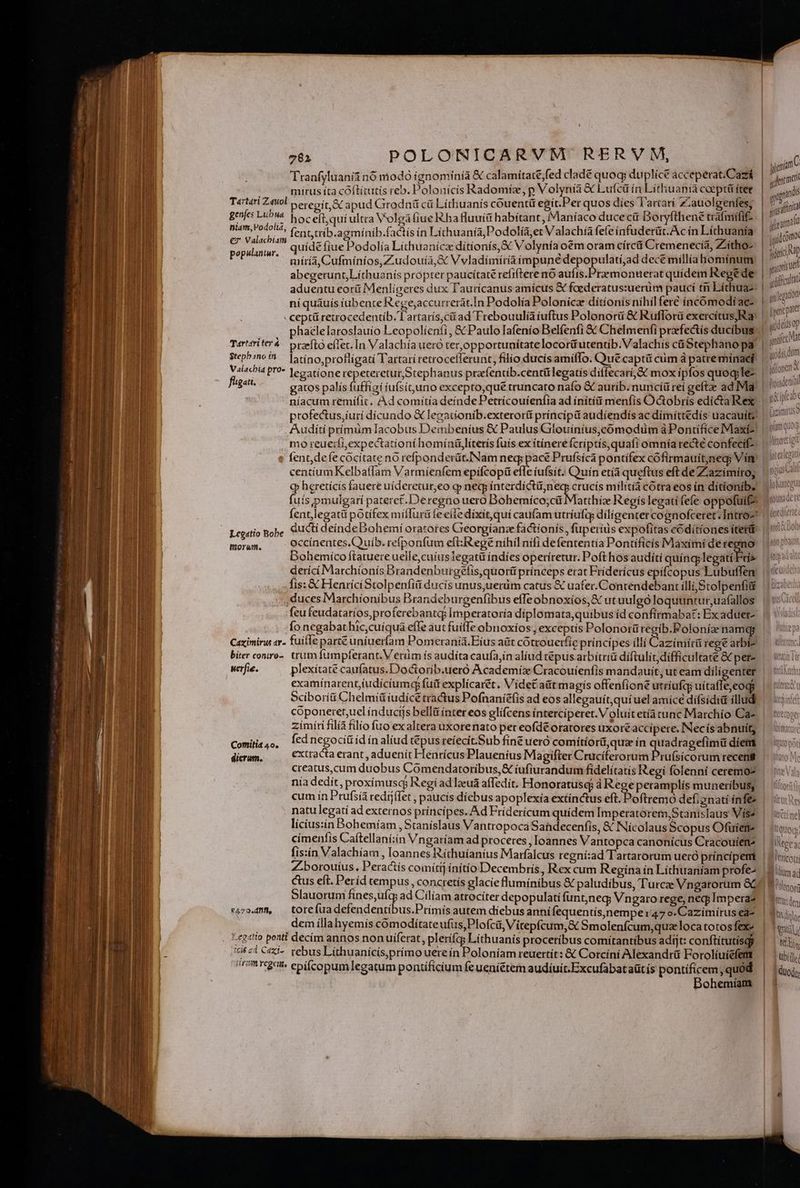 782 POLONICARVM RERVM,
Tranſyluaniā nō modò ignominiā & calamitatē, ſed cladē quoq; duplicē acceperat. Cazi
mirus ita cōſtitutis reb. Polonicis Radomiæ, p Volyniā & Luſcū in Lithuaniā cœptū iter
Tartari Zauol peregit, & apud Grodnū cū Lithuanis cōuentū egit. Per quos dies Tartari Zauolgenſes,
genſes Lubua hoc eſt, qui ultra Volgā ſiue Rha fluuiū habitant, Maniaco duce cū Boryſthenē trāſmiſiſ-
niam, Podoliā, ſent, trib. agminib. factis in Lithuaniā, Podoliā, et Valachiā ſeſe infuderūt. Ac in Lithuania
er Valachiam quidē ſiue Podolia Lithuanicæ ditionis, & Volynia oēm oram circū Cremeneciā, Zitho-
populantur. miriā, Cuſminios, Zudouiā, & Vvladimiriā impunè depopulati, ad decē millia hominum
abegerunt, Lithuanis propter paucitatē reſiſtere nō auſis. Præmonuerat quidem Regē de
aduentu eorū Menligeres dux Tauricanus amicus & fœderatus: uerùm pauci tñ Lithua-
ni quāuis iubente Rege, accurrerāt. In Podolia Polonicæ ditionis nihil ferè incōmodi ac-
ceptū retrocedentib. Tartaris, cū ad Trebouuliā iuſtus Polonorū & Ruſſorū exercitus, Ra
phaele Iaroslauio Leopolienſi, & Paulo Iaſenio Belſenſi & Chelmenſi præfectis ducibus
Tartari ter à præſtò eſſet. In Valachia uerò ter, opportunitate locorū utentib. Valachis cū Stephano pa
Stephano in latino, profligati Tartari retroceſſerunt, filio ducis amiſſo. Quē captū cùm à patre minaci
Valachia pro- legatione repeteretur, Stephanus præſentib. centū legatis diſſecari, & mox ipſos quoq; le-
fligati. gatos palis ſuffigi iuſsit, uno excepto, quē truncato naſo & aurib. nunciū rei geſtæ ad Ma
niacum remiſit. Ad comitia deinde Petricouienſia ad initiū menſis Octobris edicta Rex
profectus, iuri dicundo & legationib. exterorū principū audiendis ac dimittēdis uacauit.
Auditi primùm Iacobus Dembenius & Paulus Glouinius, cōmodùm à Pontifice Maxi-
mo reuerſi, expectationi hominū, literis ſuis ex itinere ſcriptis, quaſi omnia rectè confeciſ-
ſent, de ſe cōcitatæ nō reſponderūt. Nam neq; pacē Pruſsicā pontifex cōfirmauit, neq; Vin
centium Kelbaſſam Varmienſem epiſcopū eſſe iuſsit. Quin etiā queſtus eſt de Zazimiro,
q hereticis fauere uideretur, eo q neq; interdictū, neq; crucis militiā cōtra eos in ditionib.
ſuis pmulgari pateret. De regno uerò Bohemico, cū Matthiæ Regis legati ſeſe oppoſuiſ-
ſent, legatū pōtifex miſſurū ſe eiſe dixit, qui cauſam utriuſq; diligenter cognoſceret. Intro-
Legatio Bohe ducti deinde Bohemi oratores Georgianæ factionis, ſuperius expoſitas cōditiones iterū
morum. occinentes. Quib. reſponſum eſt: Regē nihil niſi de ſententia Pontificis Maximi de regno
Bohemico ſtatuere uelle, cuius legatū indies operiretur. Poſt hos auditi quinq; legati Fri-
derici Marchionis Brandenburgēſis, quorū princeps erat Fridericus epiſcopus Lubuſſen
ſis: & Henrici Stolpenſiū ducis unus, uerùm catus & uafer. Contendebant illi, Stolpenſiū
duces Marchionibus Brandeburgenſibus eſſe obnoxios, & ut uulgò loquuntur, uaſallos
ſeu feudatarios, proferebantq; Imperatoria diplomata, quibus id confirmabat: Ex aduer-
ſo negabat hic, cuiquā eſſe aut fuiſſe obnoxios, exceptis Polonorū regib. Poloniæ namq;
Cazimirus ar- fuiſſe partē uniuerſam Pomeraniā. Eius aūt cōtrouerſiæ principes illi Cazimirū regē arbi-
biter contro- trum ſumpſerant. Verùm is audita cauſa, in aliud tēpus arbitriū diſtulit, difficultatē & per-
uerſiæ. plexitatē cauſatus. Doctorib. uerò Academiæ Cracouienſis mandauit, ut eam diligenter
examinarent, iudiciumq; ſuū explicarēt. Videt aūt magis offenſionē utriuſq; uitaſſe, eoq;
Sciboriū Chelmiū iudicē tractus Poſnaniēſis ad eos allegauit, qui uel amicè diſsidiū illud
cōponeret, uel inducijs bellū inter eos gliſcens interciperet. Voluit etiā tunc Marchio Ca-
zimiri filiā filio ſuo ex altera uxore nato per eoſdē oratores uxorē accipere. Nec is abnuit,
Comitia 40. ſed negociū id in aliud tēpus reiecit. Sub finē uerò comitiorū, quæ in quadrageſimū diem
dierum. extracta erant, aduenit Henricus Plauenius Magiſter Cruciferorum Pruſsicorum recens
creatus, cum duobus Cōmendatoribus, & iuſiurandum fidelitatis Regi ſolenni ceremo-
nia dedit, proximusq; Regi ad læuā aſſedit. Honoratusq; à Rege peramplis muneribus,
cum in Pruſsiā redijſſet, paucis diebus apoplexia extinctus eſt. Poſtremò deſignati in ſe-
natu legati ad externos principes. Ad Fridericum quidem Imperatorem, Stanislaus Vis-
licius: in Bohemiam, Stanislaus Vantropoca Sandecenſis, & Nicolaus Scopus Oſuien-
cimenſis Caſtellani: in Vngariam ad proceres, Ioannes Vantopca canonicus Cracouien-
ſis: in Valachiam, Ioannes Rithuianius Marſalcus regni: ad Tartarorum uerò principem
Zborouius. Peractis comitij initio Decembris, Rex cum Regina in Lithuaniam profe-
ctus eſt. Per id tempus, concretis glacie fluminibus & paludibus, Turcæ Vngarorum &
Slauorum fines, uſq; ad Ciliam atrociter depopulati ſunt, neq; Vngaro rege, neq; Impera-
1470. ann. tore ſua defendentibus. Primis autem diebus anni ſequentis, nempe 1470. Cazimirus ea-
dem illa hyemis cōmoditate uſus, Ploſcū, Vitepſcum, & Smolenſcum, quæ loca totos ſex-
Legatio ponti decim annos non uiſerat, plerisq; Lithuanis proceribus comitantibus adijt: conſtitutisq;
ficis ad Cazi- rebus Lithuanicis, primo uere in Poloniam reuertit: & Corcini Alexandrū Foroliuiēſem
mirum regem. epiſcopum legatum pontificium ſe ueniētem audiuit. Excuſabat aūt is pontificem, quòd
Bohemiam